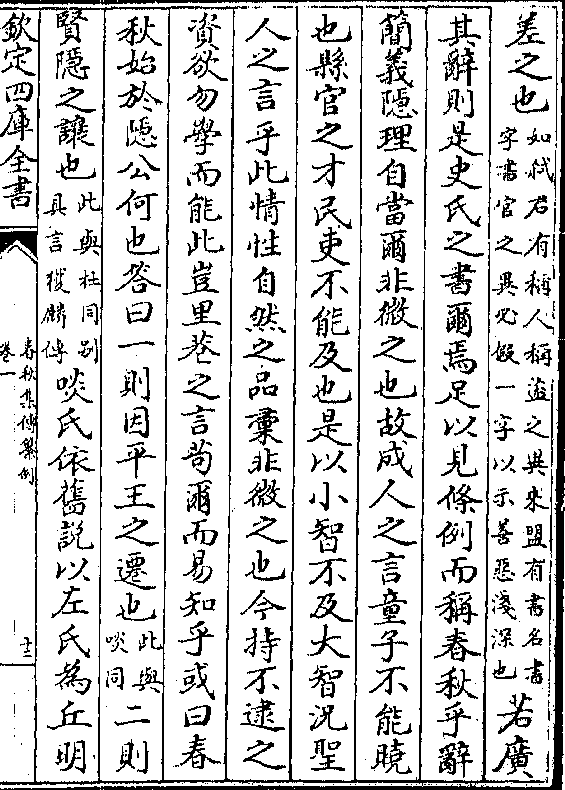 差之也如弑君有稱人稱盜之異來盟有書名書字書官之異必假一字以示善惡淺深也若廣
其辭則是史氏之書爾焉足以見條例而稱春秋乎辭
簡義隱理自當爾非微之也故成人之言童子不能曉
也縣官之才民吏不能及也是以小智不及大智況聖
人之言乎此情性自然之品彚非微之也今持不逮之
資欲勿學而能此豈里巷之言苟爾而易知乎或曰春
秋始於隱公何也答曰一則因平王之遷也此與啖同二則
賢隱之讓也此與杜同别具言獲麟傳啖氏依舊說以左氏為丘明
欽定四庫全書
春秋集傳纂例
卷一